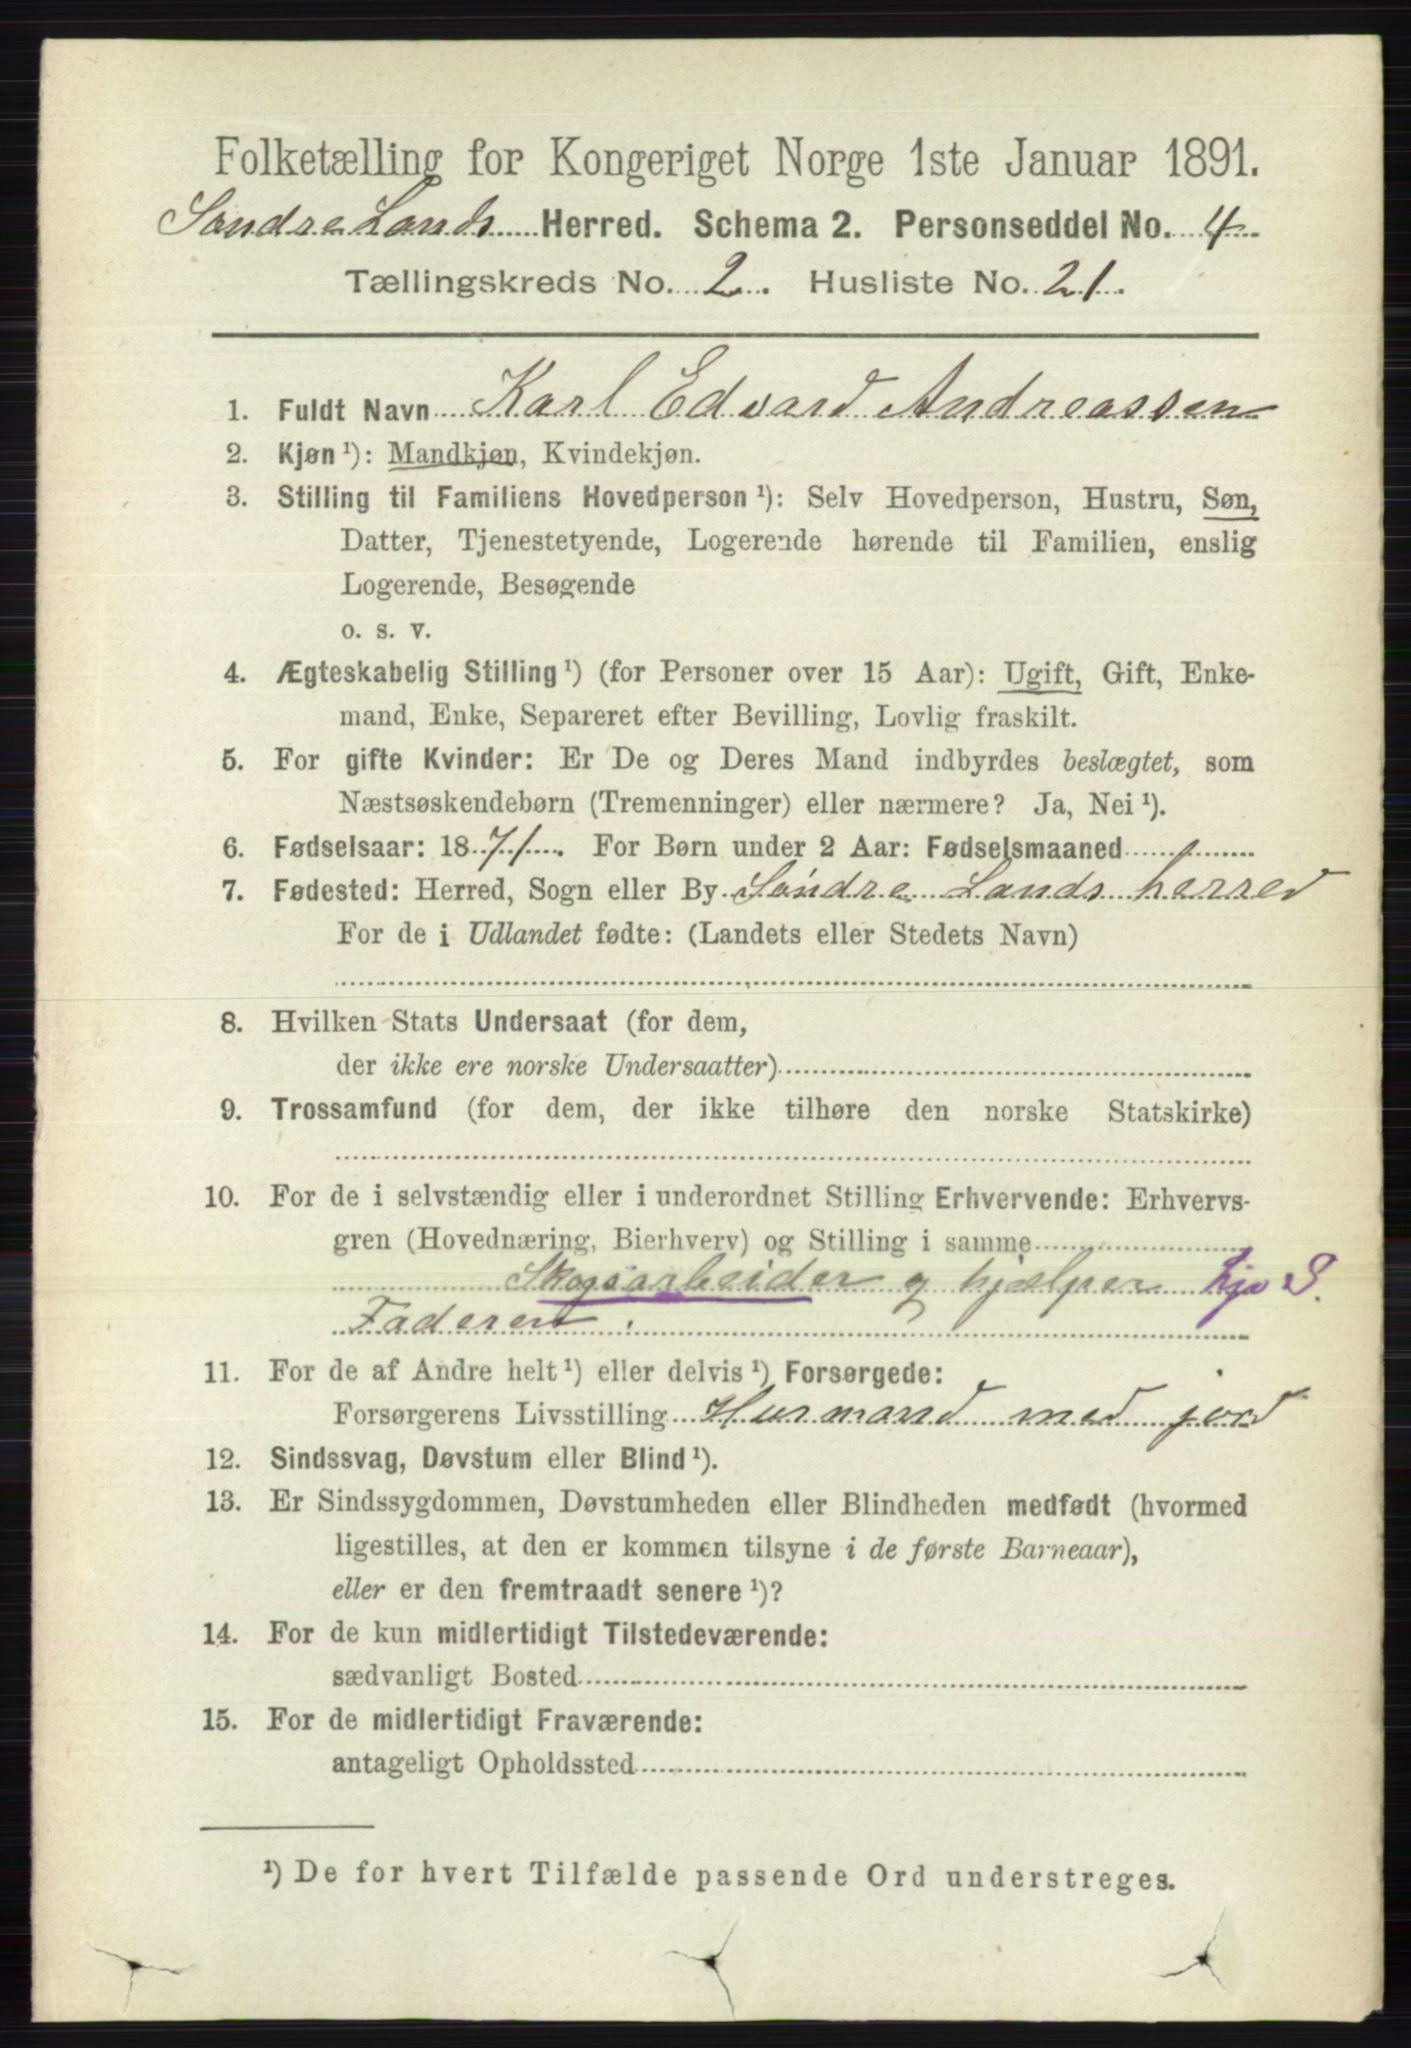 Folketælling for Kongeriget Norge 1ste Januar 1891.
Søndre Lands Herred. Schema 2. Personseddel No. 4
Tællingskreds No. 2. Husliste No. 21.
1. Fuldt Navn Karl Edvard Andreassen
2. Kjøn ¹): Mandkjøn, Kvindekjøn.
3. Stilling til Familiens Hovedperson ¹): Selv Hovedperson, Hustru, Søn,
Datter, Tjenestetyende, Logerende hørende til Familien, enslig
Logerende, Besøgende
o. s. v.
4. Ægteskabelig Stilling ¹) (for Personer over 15 Aar): Ugift, Gift, Enke-
mand, Enke, Separeret efter Bevilling, Lovlig fraskilt.
5. For gifte Kvinder: Er De og Deres Mand indbyrdes beslægtet, som
Næstsøskendebørn (Tremenninger) eller nærmere? Ja, Nei ¹).
6. Fødselsaar: 1871. For Børn under 2 Aar: Fødselsmaaned
7. Fødested: Herred, Sogn eller By Søndre Lands herred
For de i Udlandet fødte: (Landets eller Stedets Navn)
8. Hvilken Stats Undersaat (for dem,
der ikke ere norske Undersaatter)
9. Trossamfund (for dem, der ikke tilhøre den norske Statskirke)
10. For de i selvstændig eller i underordnet Stilling Erhvervende: Erhvervs-
gren (Hovednæring, Bierhverv) og Stilling i samme
Skogsarbeider og hjælper hjo S.
Faderen.
11. For de af Andre helt ¹) eller delvis ¹) Forsørgede:
Forsørgerens Livsstilling Husmand med jord
12. Sindssvag, Døvstum eller Blind ¹).
13. Er Sindssygdommen, Døvstumheden eller Blindheden medfødt (hvormed
ligestilles, at den er kommen tilsyne i de første Barneaar),
eller er den fremtraadt senere ¹)?
14. For de kun midlertidigt Tilstedeværende:
sædvanligt Bosted
15. For de midlertidigt Fraværende:
antageligt Opholdssted
¹) De for hvert Tilfælde passende Ord understreges.